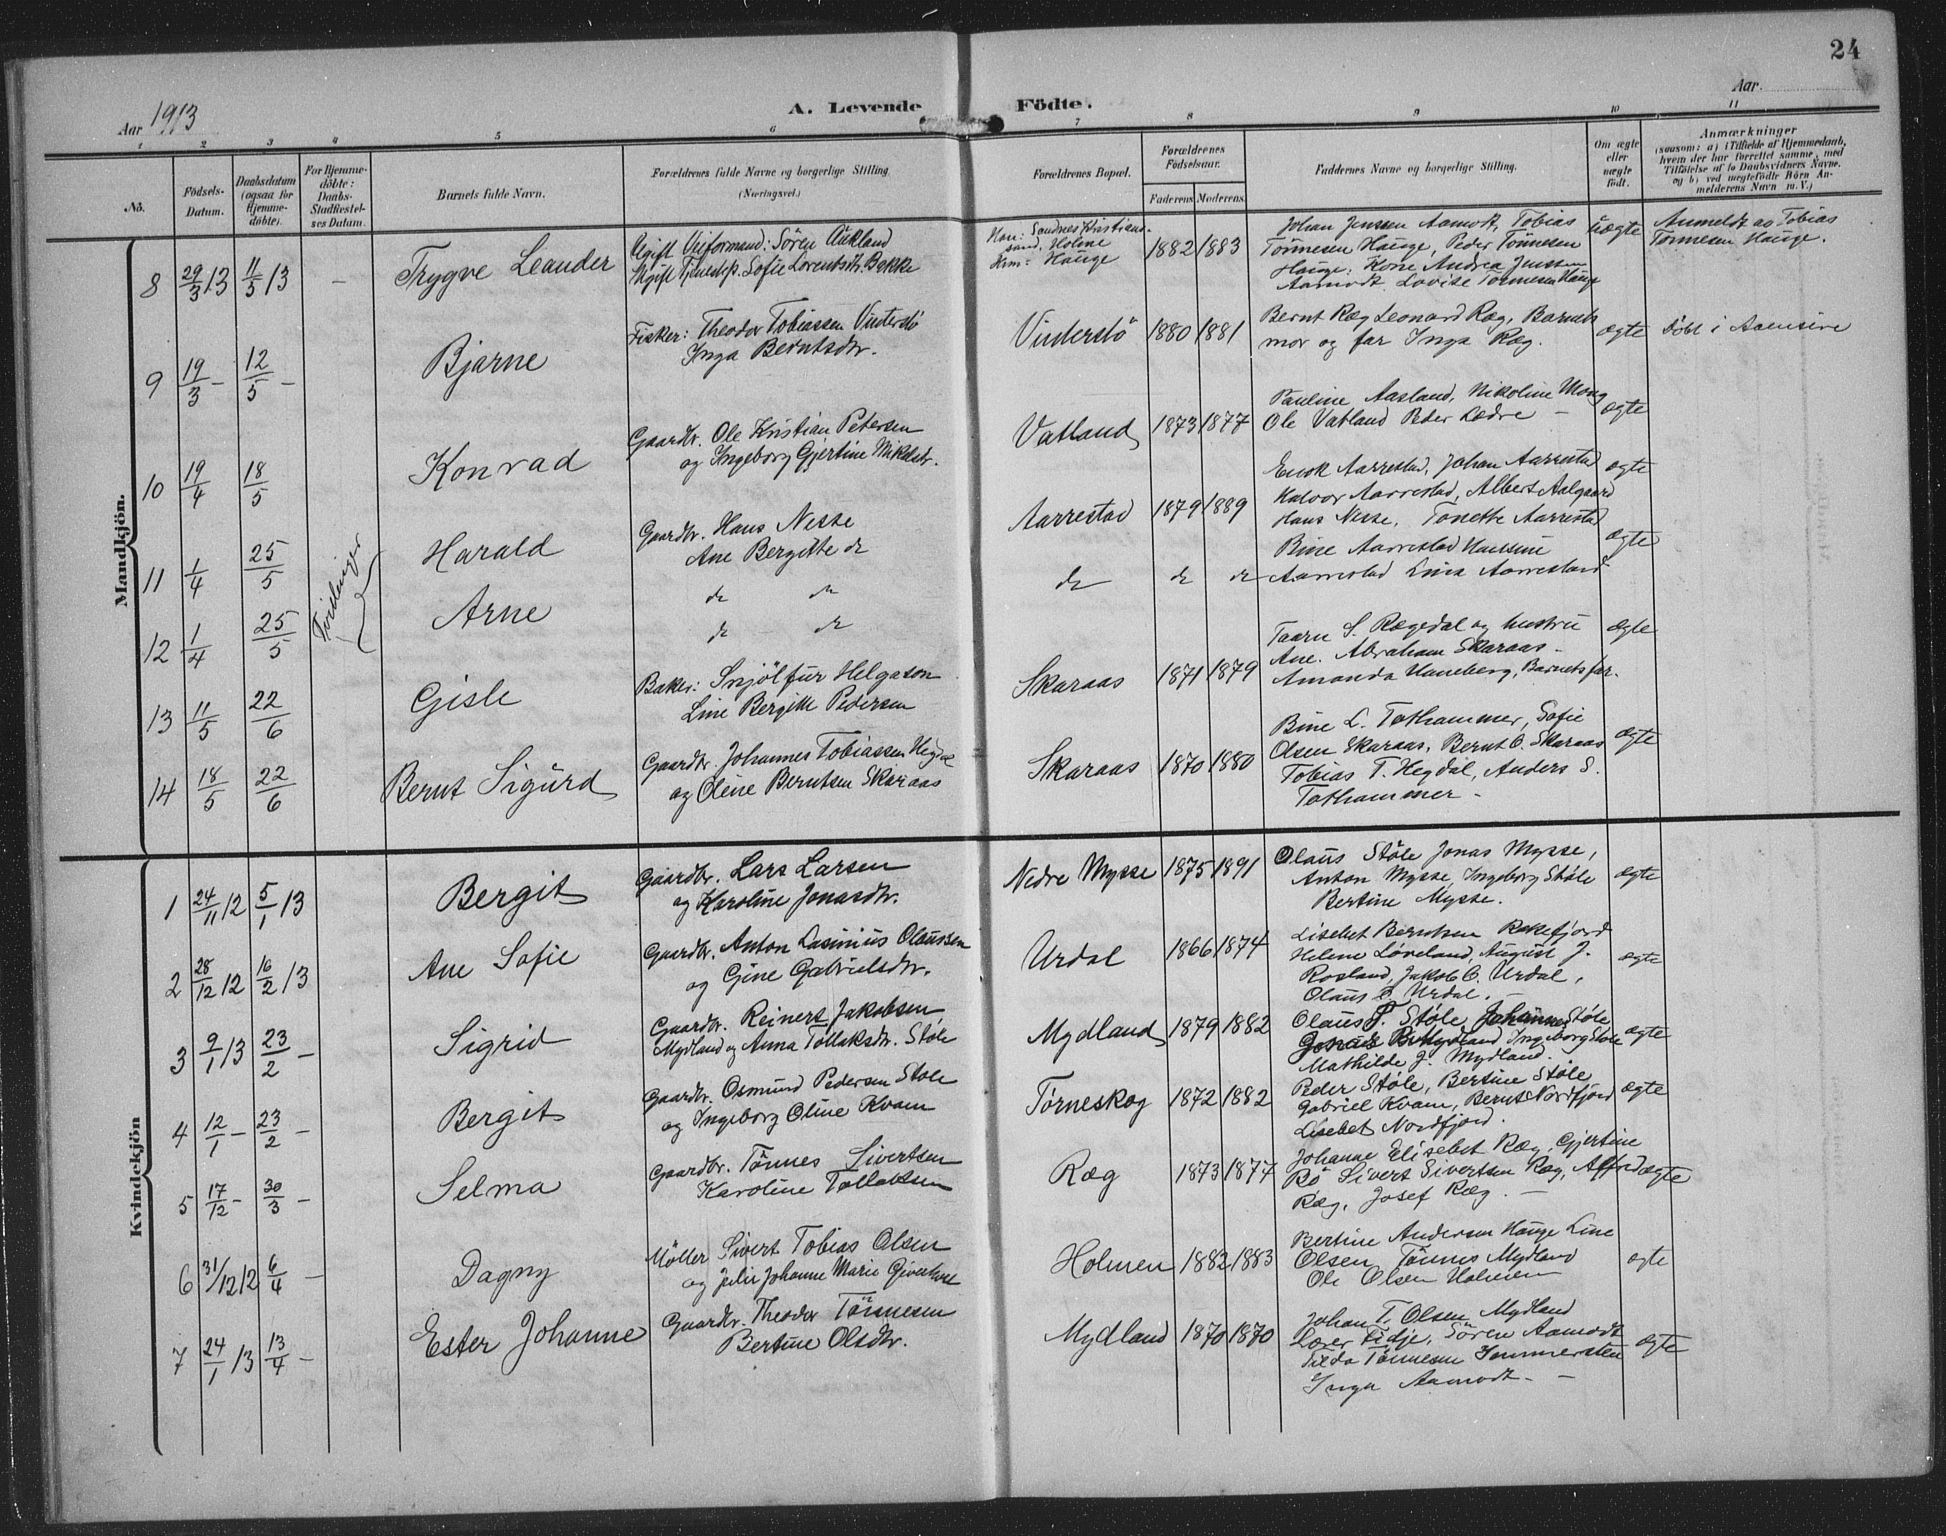 24
Aar 1913
A. Levende Födte.
Aar
1 2 3 4 5 6 7 8 9 10 11
No.
Födsels-Datum.
Daabsdatum (ogsaa for Hjemmedöbte).
For Hjemmedöbte: Daabs-Stadfæstelses Datum.
Barnets fulde Navn.
Forældrenes fulde Navne og borgerlige Stilling (Næringsvei.)
Forældrenes Bopæl.
Forældrenes Födselsaar.
Faderens Moderens
Faddernes Navne og borgerlige Stilling.
Om ægte eller uægte födt.
Anmærkninger
(saasom: a) i Tilfælde af Hjemmedaab, hvem der har forrettet samme, med Tilföielse af to Daabsvidners Navne. og b) ved uægtefödte Börn Anmelderens Navn m. V.)
Mandkjön.
8 29/3 13 11/5 13 — Trygve Leander
Ugift Sören Aukland
Ugift Sofie Lorentsdtr. Bakke
Han: Sandnes Kristiansand, Holme
Hun: Hauge
1882 1883
Johan Jenssen Aamodt, Tobias
Tönnesen Hauge, Peder Tönnesen
Hauge: Kone Andrea Jenssen
Aamodt. Lovise Tönnesen Hauge
uægte
Anmeldt av Tobias
Tönnesen Hauge.
9 19/3 — 12/5 — Bjarne
Fisker: Theodor Tobiassen Vinterstö
Inga Berntsdtr.
Vinterstö 1880 1881
Bernt Ræg Leonard Ræg, Barnets
mor og far Inga Ræg.
ægte
Döbt i
10 19/4 18/5 Konrad
Gaardbr. Ole Kristian Petersen
og Ingeborg Gjertine Mikelsdtr.
Vatland 1873 1877
Pauline Aasland, Nikoline Mong
Ole Vatland Peder Lædre —
ægte
11 1/4 25/5 Tvillinger Harald
Gaardbr. Hans Nesse
Ane Bergitte do
Aarrestad 1879 1889
Enok Aarrestad, Johan Aarrestad
Halvor Aarrestad, Albert Aalgaard
Hans Nesse, Tonette Aarrestad
ægte
12 1/4 25/5 Arne
do do
do do
do do do
Bine Aarrestad
Aarrestad Lina Aarrestad
ægte
13 11/5 22/6 Gisle
Baker: Snjólfur Helgason
Line Bergitte Pedersen
Skaraas 1871 1879
S. Rægedal og hustru
Ane. Abraham Skaraas.
Amanda Haneberg, Barnets far.
ægte
14 18/5 22/6 Bernt Sigurd
Gaardbr. Johannes Tobiassen Hegdal
og Oline Berntsen Skaraas
Skaraas 1870 1880
Bine L. Tothammer, Sofie
Olsen Skaraas, Bernt O. Skaraas
Tobias T. Hegdal, Anders S.
Tothammer —
ægte
Kvindekjön
1 24/11 12 5/1 13 Bergit
Gaardbr. Lars Larsen
og Karoline Jonasdtr.
Nedre Mysse 1875 1891
Olaus Støle Jonas Mysse,
Anton Mysse, Ingeborg Støle
Bertine Mysse.
ægte
2 28/12 12 16/2 13 Ane Sofie
Gaardbr. Anton Lasinius Olaussen
og Gine Gabrielsdtr.
Urdal 1866 1874
Lisebet Berntsen Rekefjord
Helene Løveland, August J.
Rosland, Jakob O. Urdal,
Olaus Urdal.
ægte
3 9/1 13 23/2 — Sigrid
Gaardbr. Reinert Jakobsen
Mydland og Anna Tollaksdtr. Støle
Mydland 1879 1882
Olaus T. Støle Johannes Støle
Jonas Mydland Ingeborg Støle
Mathilde J. Mydland.
ægte
4 12/1 — 23/2 — Bergit
Gaardbr. Osmund Pedersen Støle
og Ingeborg Oline Kvam
Tørneskog 1872 1882
Peder Støle, Bertine Støle
Gabriel Kvam, Bernt Nordfjord
Lisebet Nordfjord.
ægte
5 17/12 — 30/3 — Selma
Gaardbr. Tönnes Sivertsen
Karoline Tollaksen
Ræg 1873 1877
Johanne Elisebet Ræg, Gjertine
Bø Sivert Sivertsen Ræg, Alfred
Ræg, Josef Ræg. —
ægte
6 31/12 12 6/4 — Dagny
Møller Sivert Tobias Olsen
og Julie Johanne Marie
Holmen 1882 1883
Bertine Andersen Hauge Line
Olsen, Tönnes Mydland
Ole Olsen Holmen
ægte
7 24/1 13 13/4 — Ester Johanne
Gaardbr. Theodor Tönnesen
Bertine Olsdtr.
Mydland 1870 1870
Johan T. Olsen Mydland
Tidje, Sören Aamodt
Tilda Tönnesen
Inga Aamodt. —
ægte